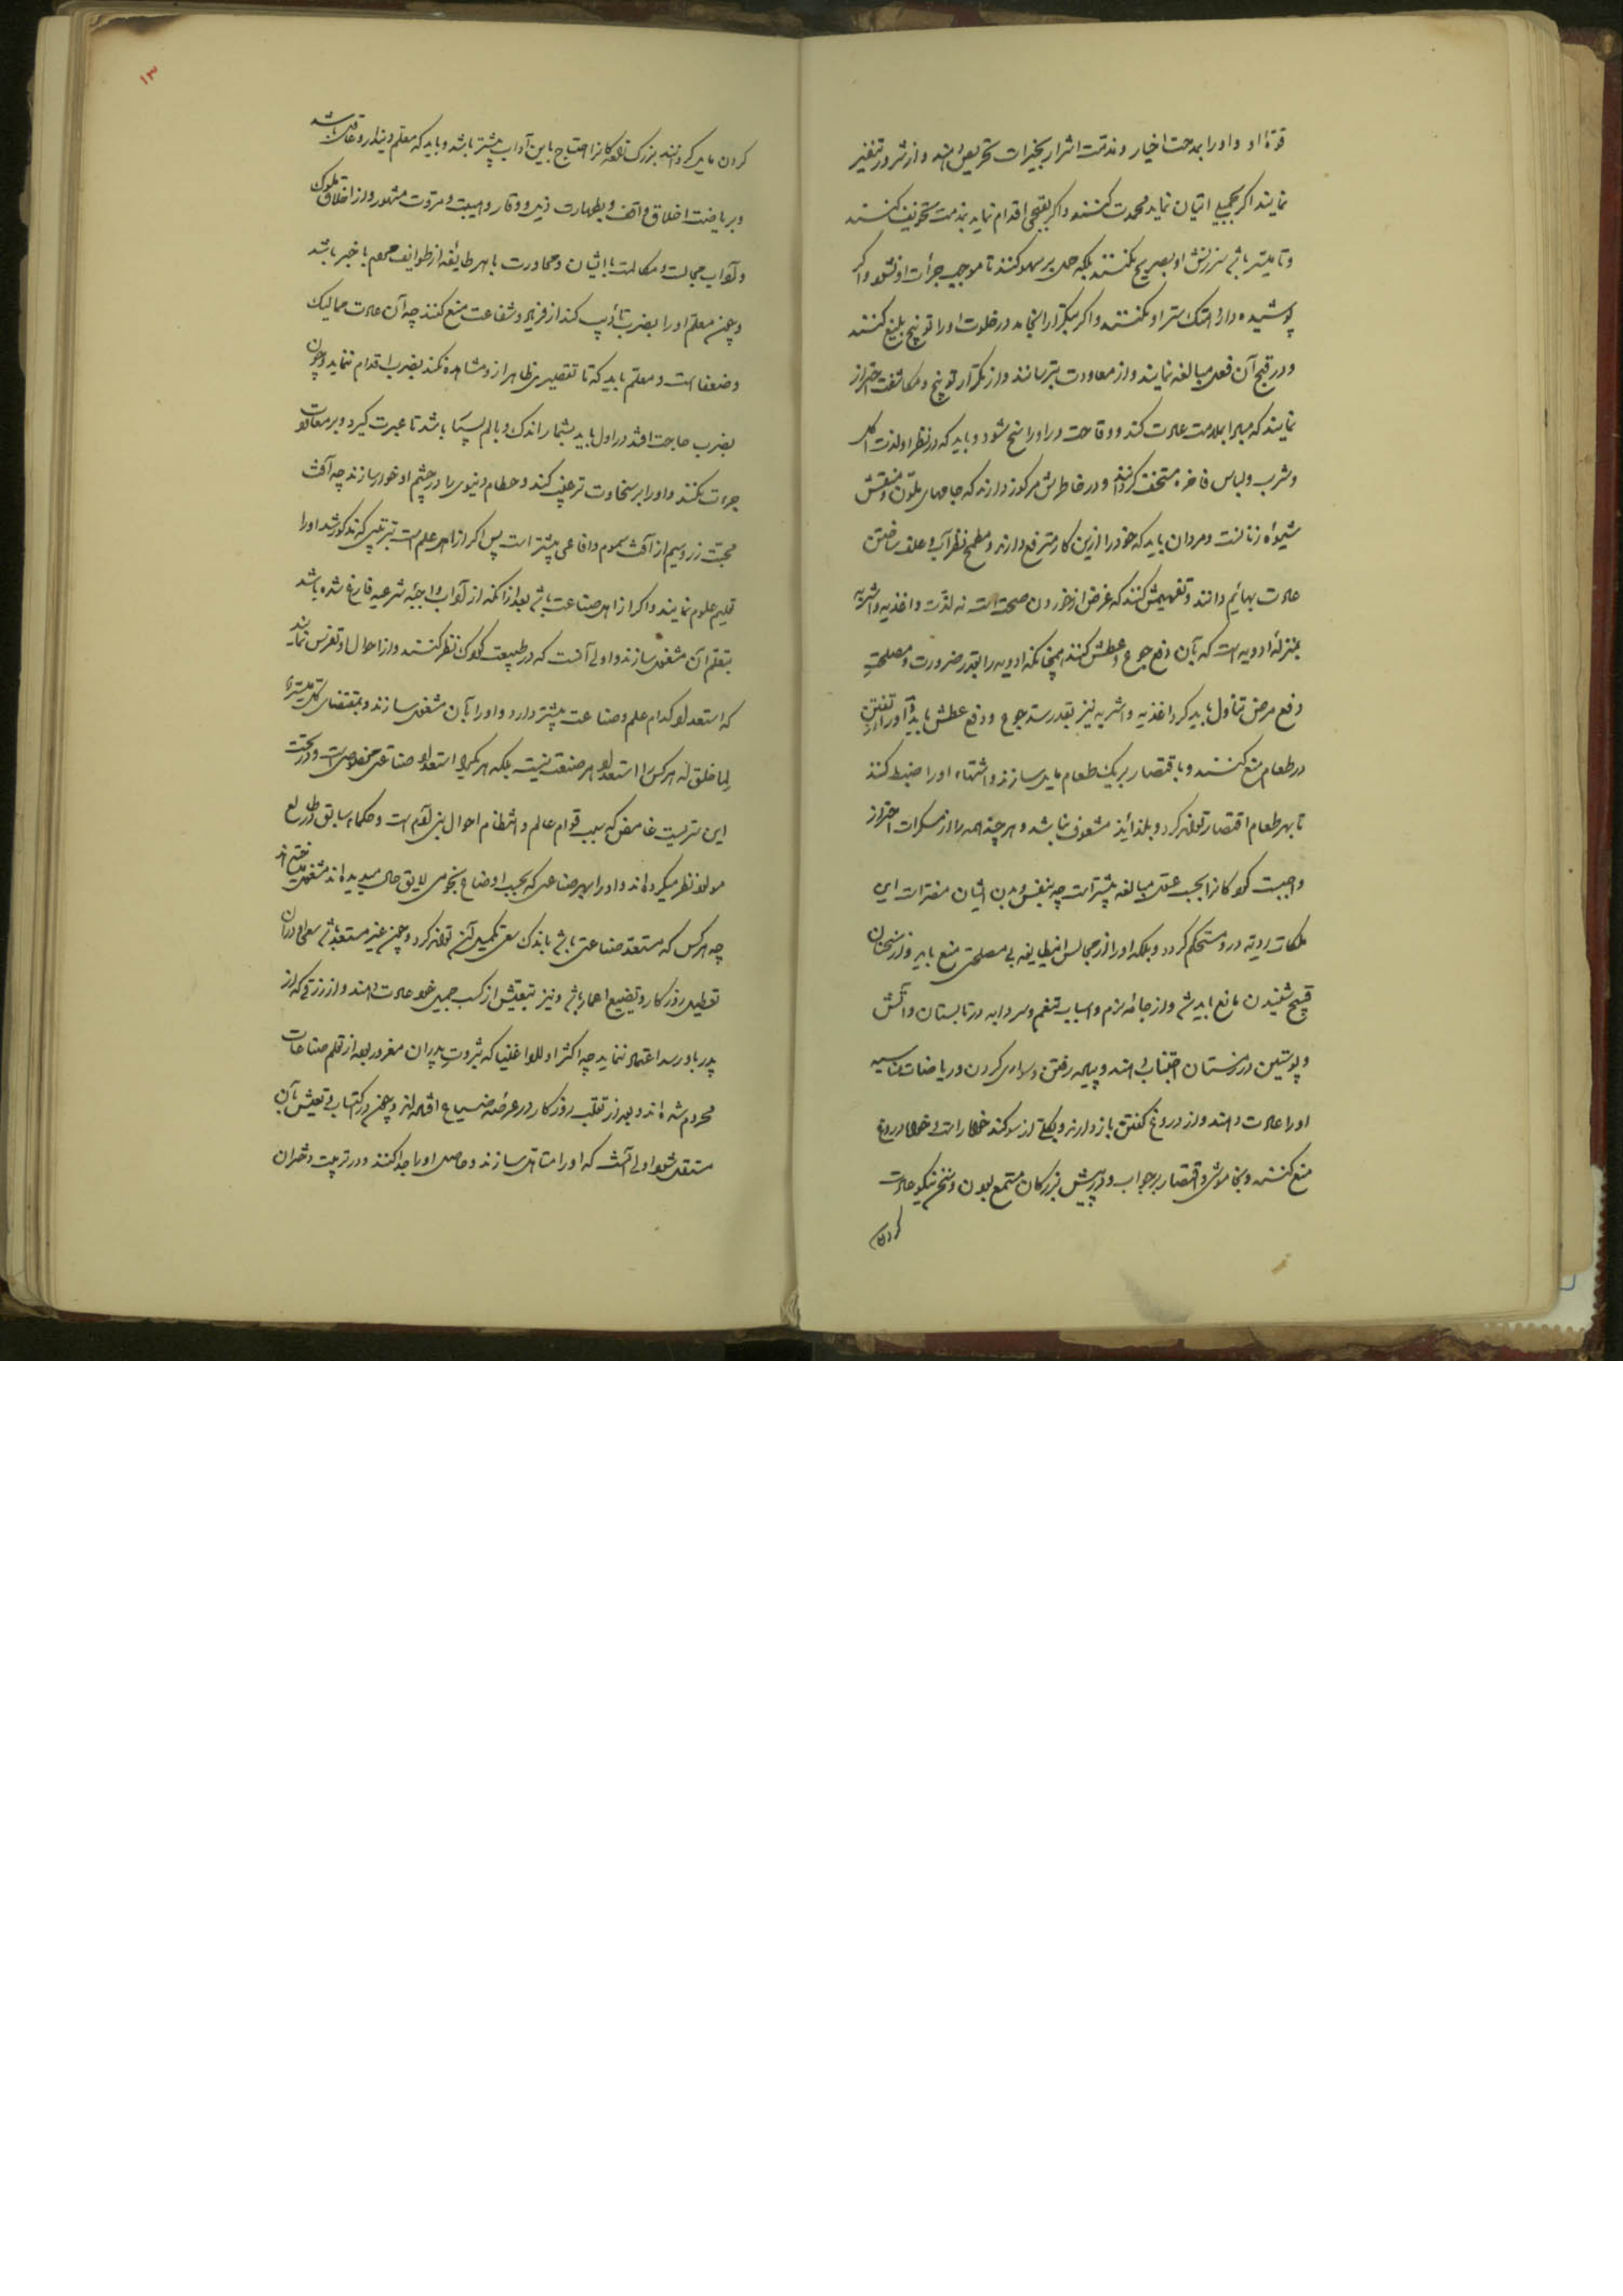 قوة او و او را بمدحت اخیار و مذمت اشرار بخیرات تحریص دهند و از شرور تنفیر
نمایند اگر بجمیلی اتیان نماید محمدت کنند و اگر بقبیحی اقدام نماید بمذمت تخویف کنند
و تا میسر باشد سرزنش او بصریح نکنند بلکه حمل بر سهو کنند تا موجب جرأت او نشود و اگر
پوشیده دارد هتک ستر او نکنند و اگر بتکرار انجامد در خلوت او را توبیخ بلیغ کنند
و در قبح آن فعل مبالغه نمایند و از معاودت بترسانند و از تکرار توبیخ و مکاشفت احتراز
نمایند که مبادا بملامت عادت کند و وقاحت درو راسخ شود و باید که در نظر او لذت اکل
و شرب و لباس فاخره مستخف گردانند و در خاطرش مرکوز دارند که جامهای ملون و منقش
شیوهٔ زنانست و مردان باید که خود را ازین کار مترفع دارند و مطمح نظر آب و علف ساختن
عادت بهائم دانند و تفهیمش کنند که غرض از خوردن صحت است نه لذت و اغذیه و اشربه
بمنزله ادویه است که بآن دفع جوع و عطش کنند همچنانکه ادویه را بقدر ضرورت و مصلحتِ
دفع مرض تناول باید کرد اغذیه و اشربه نیز بقدر سد جوع و دفع عطش باید و او را از تفنن
در طعام منع کنند و باقتصار بر یک طعام مایل سازند و اشتهاء او را ضبط کنند
تا بهر طعام اقتصار تواند کرد و بلذائذ مشعوف نباشد و هر چند همه را از مسکرات احتراز
واجبست کودکانرا بحسب عقل مبالغه بیشتر است چه بنفس و بدن ایشان مضرات این
ملکات ردیه درو مستحکم گردد و بلکه او را از مجالس اینطایفه بی مصلحتی منع باید و از سخنان
قبیح شنیدن مانع باید شد و از جامه نرم و اسباب تنعم و سردابه در تابستان و آتش
و پوستین در زمستان اجتناب دهند و پیاده رفتن و سواری کردن و ریاضات مناسبه
او را عادت دهند و از دروغ گفتن باز دارند و بکلی از سوگند خواه راست و خواه دروغ
منع کنند و بخاموشی و اقتصار بر جواب و در پیش بزرگان مستمع بودن و سخن نیکو عادت
کردن
۱۳
کردن مایل گردانند بزرگ زادگانرا احتیاج باین آداب بیشتر باشد و باید که معلم دیندار و عاقل باشد
و بریاضت اخلاق واقف و بطهارت ذیل و وقار و هیبت و مروت مشهور و از اخلاق ملوک
و آداب مجالست و مکالمت با ایشان و محاورت با هر طایفه از طوایف مردم با خبر باشد
و چون معلم او را بضرب تأدیب کند از فریاد و شفاعت منع کنند چه آن عادت ممالیک
و ضعفا است و معلم باید که تا تقصیری ظاهر ازو مشاهده نکند بضرب اقدام ننماید و چون
بضرب حاجت افتد در اول باید بشمار اندک و بالم بسیار باشد تا عبرت گیرد و بر معاودت
جرءت نکند و او را بر سخاوت ترغیب کند و حطام دنیوی را در چشم او خوار سازند چه آفت
محبت زر و سیم از آفت سموم و افاعی بیشتر است پس اگر از اهل علم است بترتیبی که مذکور شد او را
تعلیم علوم نمایند و اگر از اهل صناعت باشد بعد از آنکه از آداب واجبهٔ شرعیه فارغ شده باشد
بتعلم آن مشغول سازند و اولی آنست که در طبیعت کودک نظر کنند و از احوال او تفرس نمایند
که استعداد کدام علم و صناعت بیشتر دارد و او را بآن مشغول سازند و بمقتضای کل میسر
لما خلق له هر کس را استعداد هر صنعت نیست بلکه هر یکرا استعداد صناعتی مخصوص است و در تحت
این سریست غامض که سبب قوام عالم و انتظام احوال بنی آدم است و حکماء سابق در طالع
مولود نظر میکرده اند و او را بهر صناعتی که بحسب اوضاع نجومی لایق حال میدیده اند مشغول میساخته اند
چه هر کس که مستعد صناعتی باشد باندک سعی تکمیل آن تواند کرد و چون غیر مستعد باشد سعی او در آن
تعطیل روزگار و تضییع اعمار باشد و نیز بتعیش از کسب جمیل خود عادت دهند و از رزقی که از
پدر باو رسد اعتماد ننماید چه اکثر اولاد اغنیا که بثروت پدران مغرور بوده از تعلم صناعات
محروم شده اند و بعد از تقلب روزگار در عرضه ضیاع افتاده اند و چون در اکتساب و تعیش بآن
مستقل شود اولی آنست که او را متأهل سازند و حاصل او را جدا کنند و در تربیت دختران